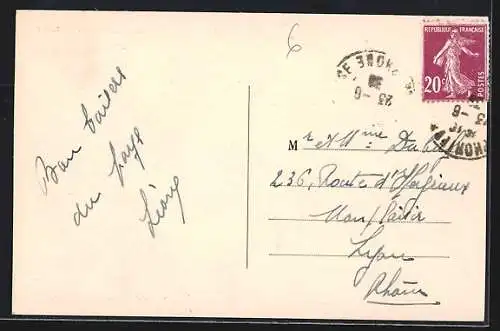 Bon baisers
du pays
Léons
6
RÉPUBLIQUE FRANÇAISE
20c
POSTES
23 - 6
Mr et Mme
236, Route d'Heyrieux
Monplaisir
Lyon
Rhône